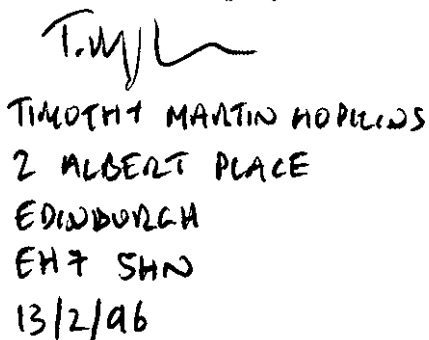 TIMOTHY MARTIN HOPKINS
2 ALBERT PLACE
EDINBURGH
EH7 5HN
13/2/96